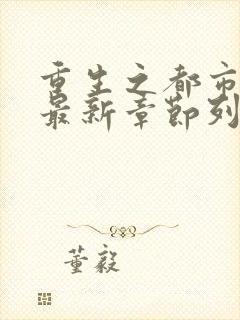 重生之都市
最新章节列
董毅